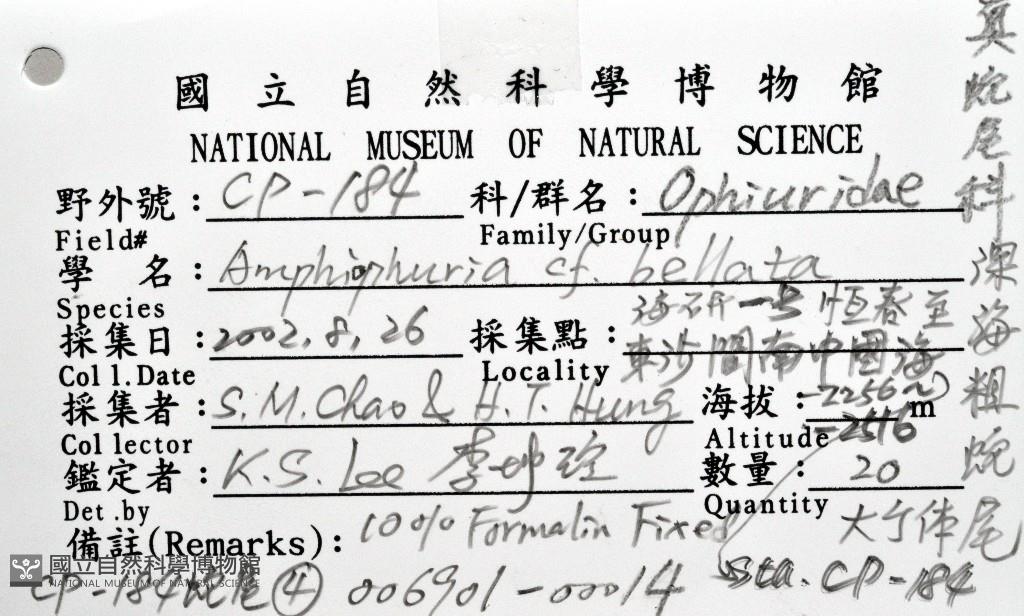 國立自然科學博物館
NATIONAL MUSEUM OF NATURAL SCIENCE
野外號: CP-184 科/群名: Ophiuridae
Field# Family/Group
學 名: Amphiophuria cf. bellata
Species
海研一号 恆春至
採集日: 2002.8.26 採集點: 東沙間南中國海
Coll.Date Locality
採集者: S.M.Chao & H.T. Hung 海拔: -2256~ m
-2516
Collector Altitude
鑑定者: K.S. Lee 李坤瑄 數量: 20
Det.by Quantity
備註(Remarks): 10% Formalin Fixed
CP-184 蛇尾④ 006901-00014 Sta. CP-184
真蛇尾科 深海粗蛇尾
國立自然科學博物館
NATIONAL MUSEUM OF NATURAL SCIENCE